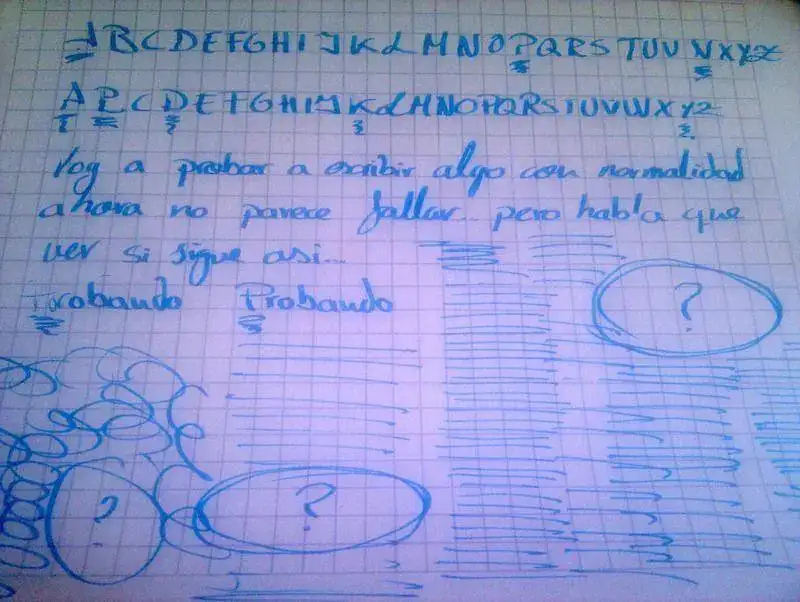 ABCDEFGHIJKLMNOPQRSTUVWXYZ
ABCDEFGHIJKLMNOPQRSTUVWXYZ
Voy a probar a escribir algo con normalidad
ahora no parece fallar... pero habla que
ver si sigue asi...
Probando Probando
?
? ?